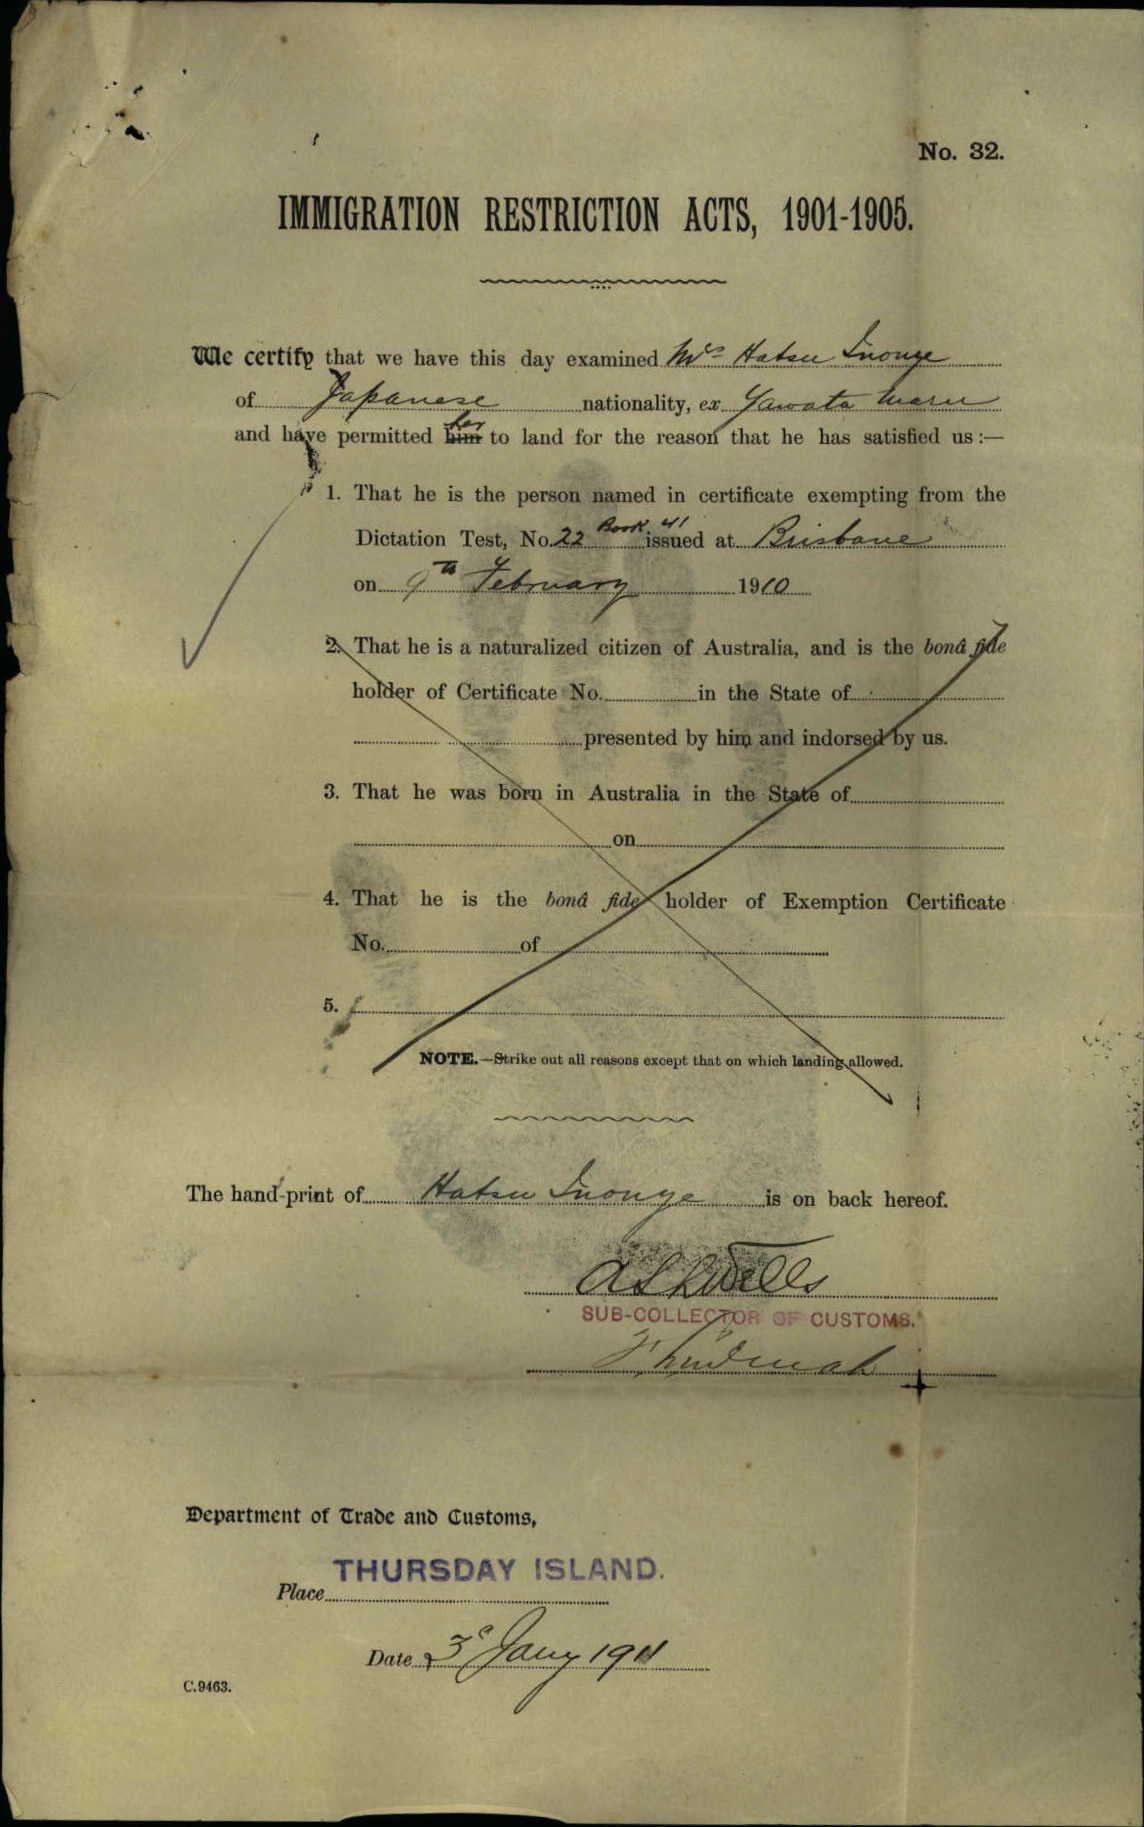 No. 32.
IMMIGRATION RESTRICTION ACTS, 1901-1905.
We certify that we have this day examined Mrs Hatsu Inouye
of Japanese nationality, ex Yawata Maru
her
and have permitted him to land for the reason that he has satisfied us :—
1. That he is the person named in certificate exempting from the
Dictation Test, No. 22 Book 41 issued at Brisbane
on 9th February 1910
2. That he is a naturalized citizen of Australia, and is the bonâ fide
holder of Certificate No. in the State of
presented by him and indorsed by us.
3. That he was born in Australia in the State of
on
4. That he is the bonâ fide holder of Exemption Certificate
No. of
5.
NOTE.—Strike out all reasons except that on which landing allowed.
The hand-print of Hatsu Inouye is on back hereof.
SUB-COLLECTOR OF CUSTOMS.
Department of Trade and Customs,
THURSDAY ISLAND.
Place
Date 3d Jany 1911
C.9463.